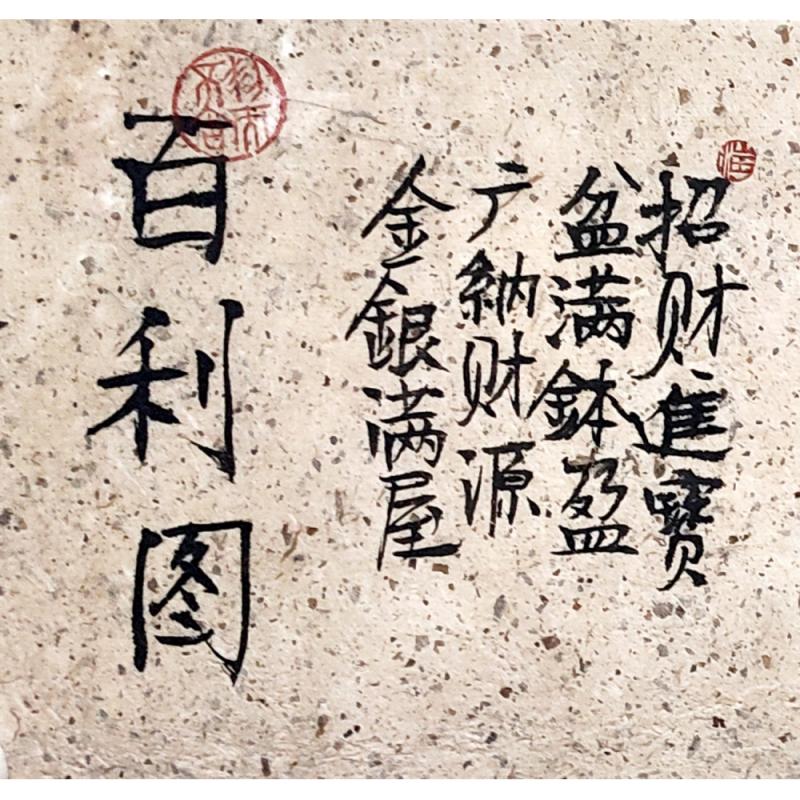 招财進寶
盆满鉢盈
广納财源
金銀满屋
百利图